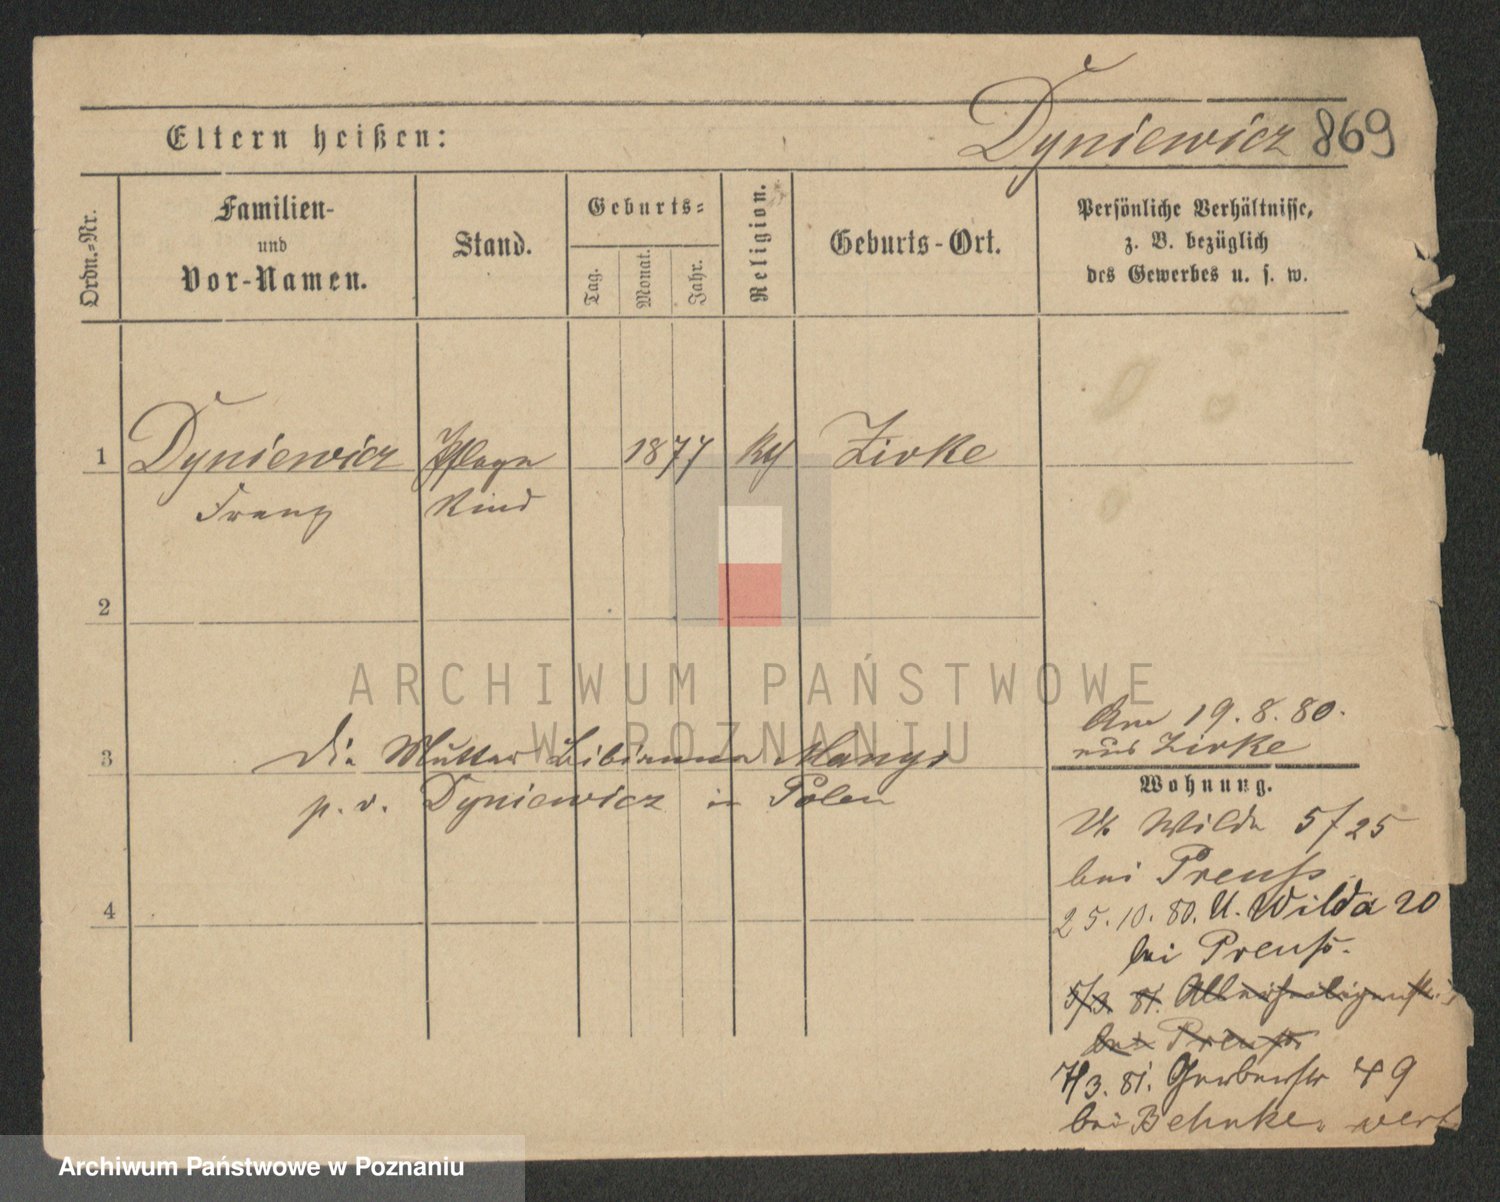 Eltern heißen:
Dyniewicz 869
Ordn.-Nr.
Familien-
und
Vor-Namen.
Stand.
Geburts-
Tag.
Monat.
Jahr.
Religion.
Geburts-Ort.
Persönliche Verhältnisse,
z. B. bezüglich
des Gewerbes u. s. w.
1 Dyniewicz Pflege 1877 kth Zirke
Franz Kind
2
3
Die Mutter Bibianna
p. v. Dyniewicz in Polen
4
Am 19.8.80.
aus Zirke
Wohnung.
U. Wilda 5/25
bei Preuß
25.10.80. U. Wilda 20
bei Preuß.
5/3. 81. Allerheiligenstr.
bei Preuß
7/3. 81. Gerberstr 49
bei Behnke.
ARCHIWUM PAŃSTWOWE
W POZNANIU
Archiwum Państwowe w Poznaniu